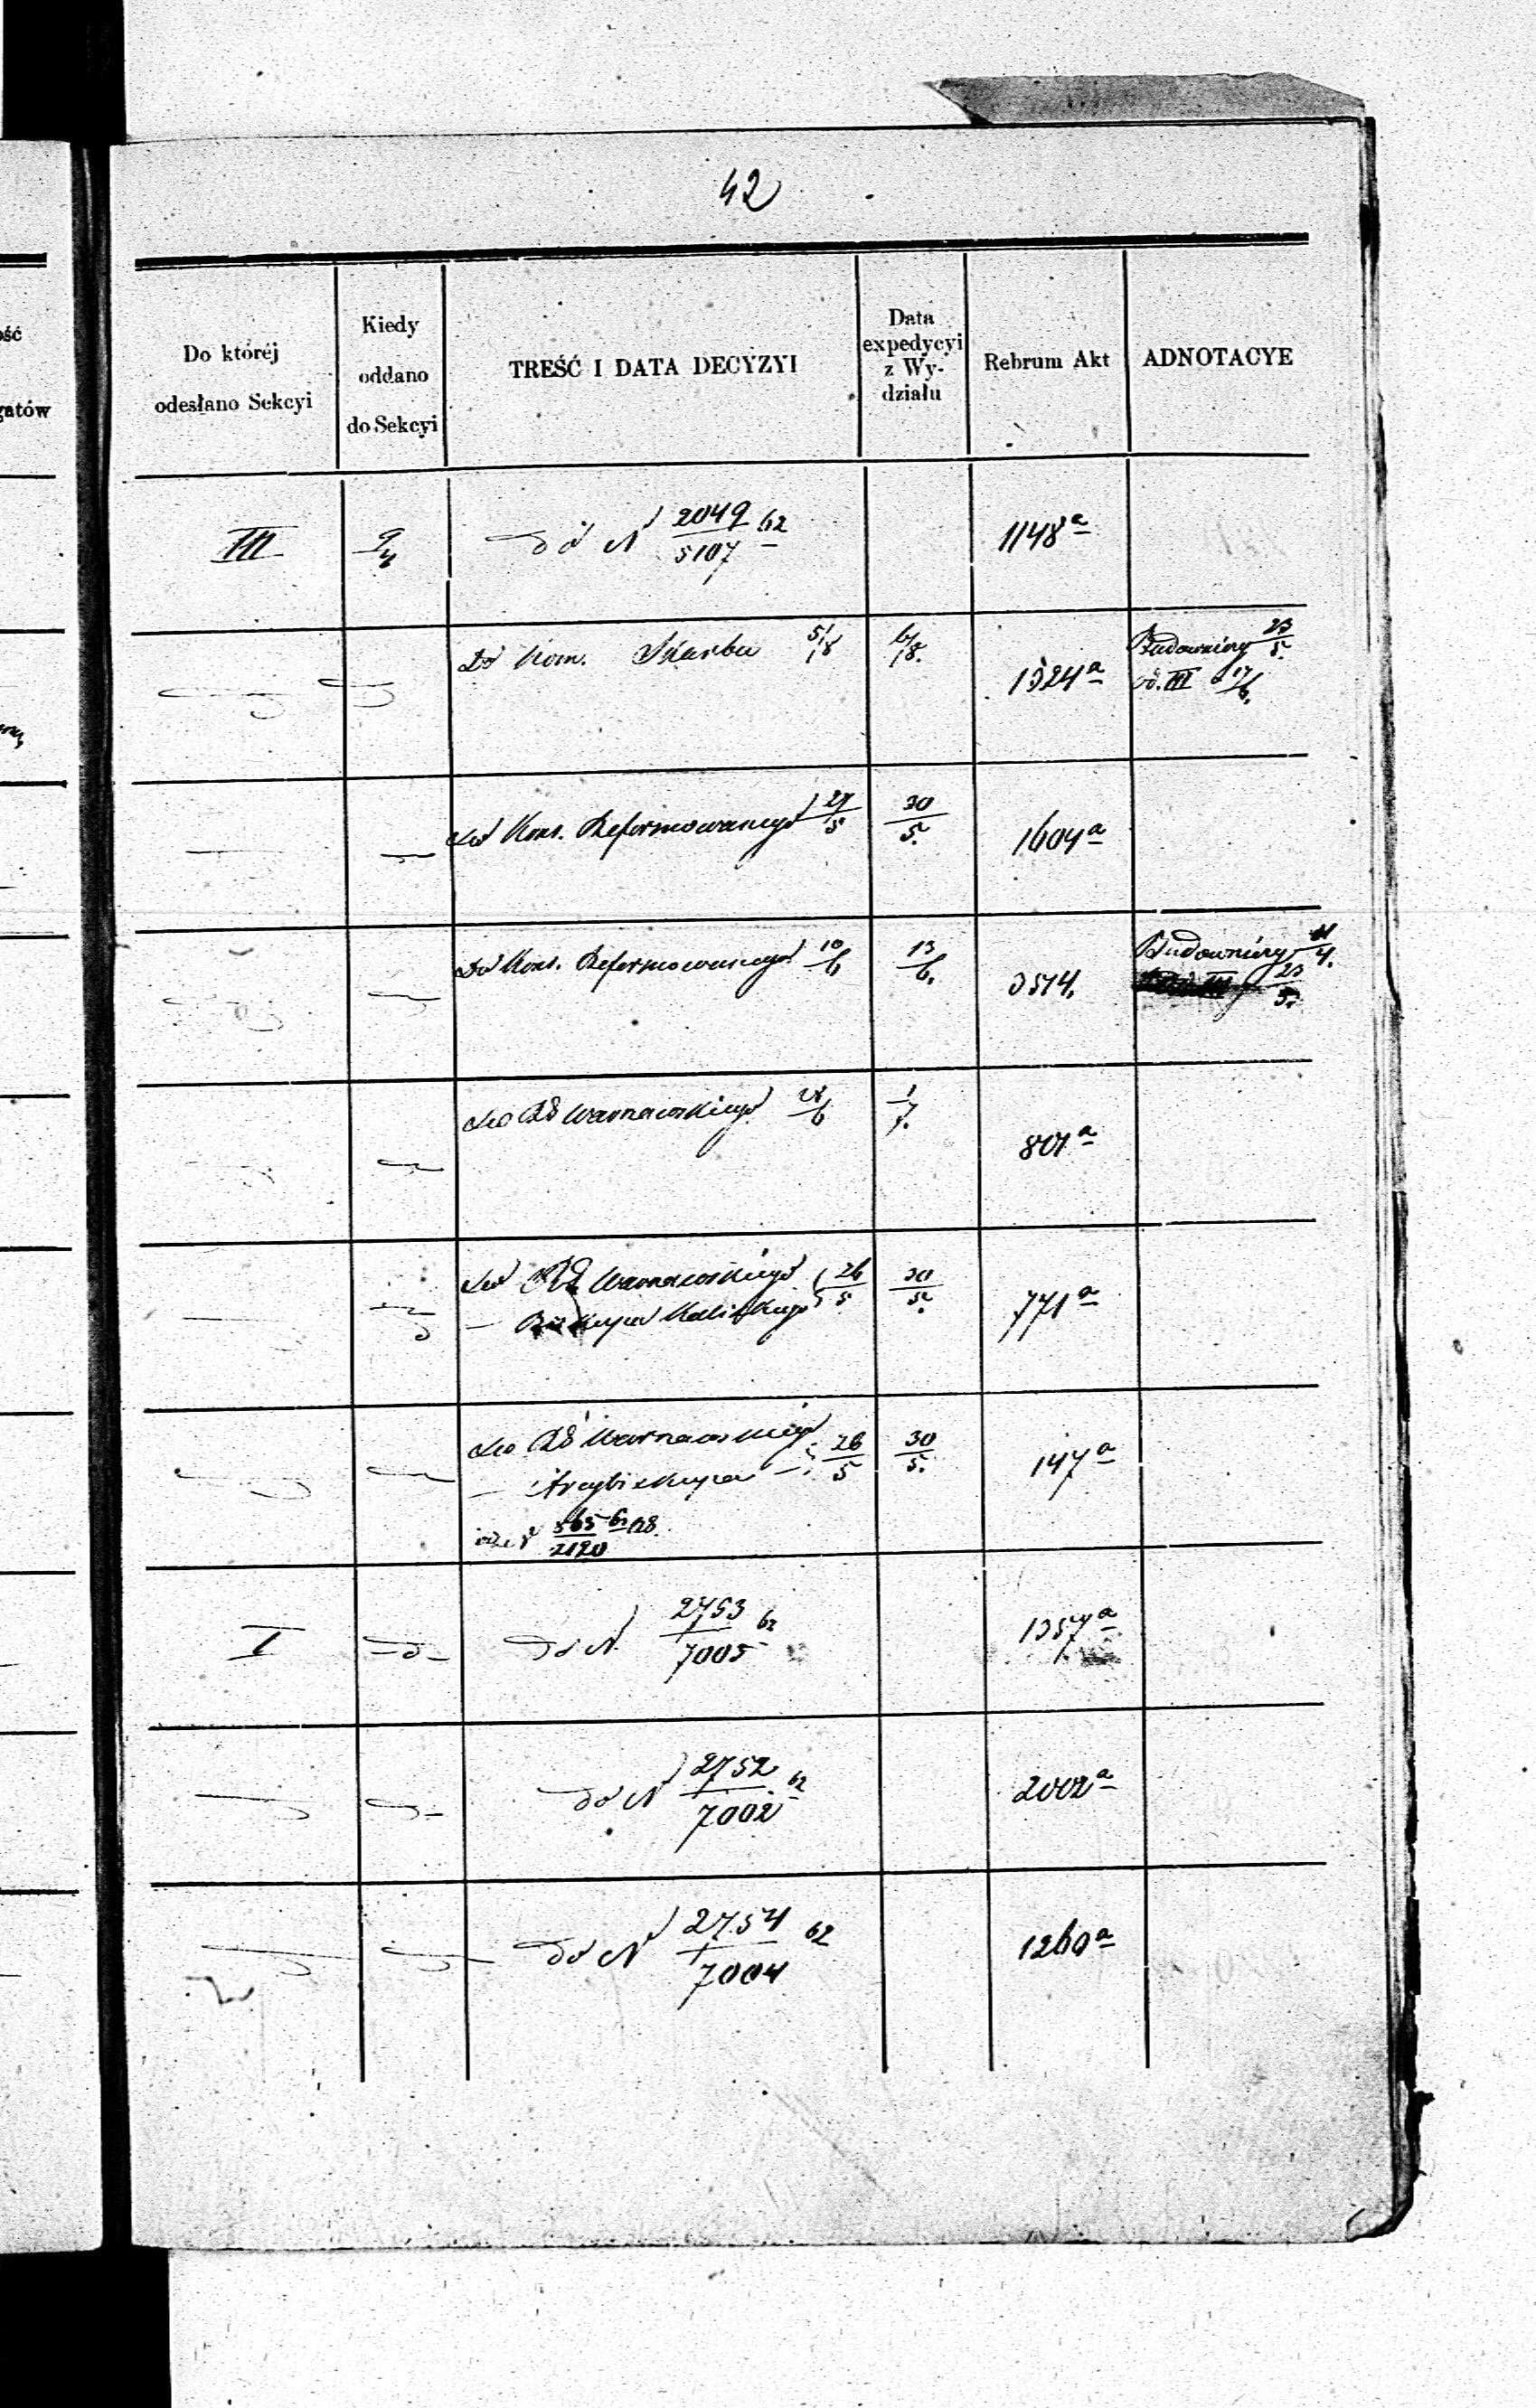 ość
gatów
42
Do której
odesłano Sekcyi
Kiedy
oddano
do Sekcyi
TREŚĆ I DATA DECYZYI
Data
expedycyi
z Wy-
działu
Rebrum Akt
ADNOTACYE
III 9/4 do N 2049/5107 62 1148a
Do Kom. Skarbu 5/8 6/8. 1324a Budowniczy 23/5.
III 17/6.
Do Kons. Reformowanego 27/5 30/5. 1604a
Do Kons. Reformowanego 10/6 13/6. 3514. Budowniczy 11/4.
23/5.
Do RG Warszawskiego 28/6 1/7. 801a
Do RG Warszawskiego 26/5 30/5. 771a
— Biskupa Kaliskiego
Do RG Warszawskiego 26/5 30/5. 147a
— Arcybiskupa —
N 565/2120
I — d — do N 2753/7005 62 1357a
do N 2752/7002 62 2002a
do N 2754/7004 62 1260a